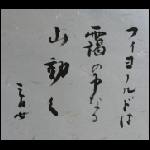 フィヨールドは
靄の中なる
山動く